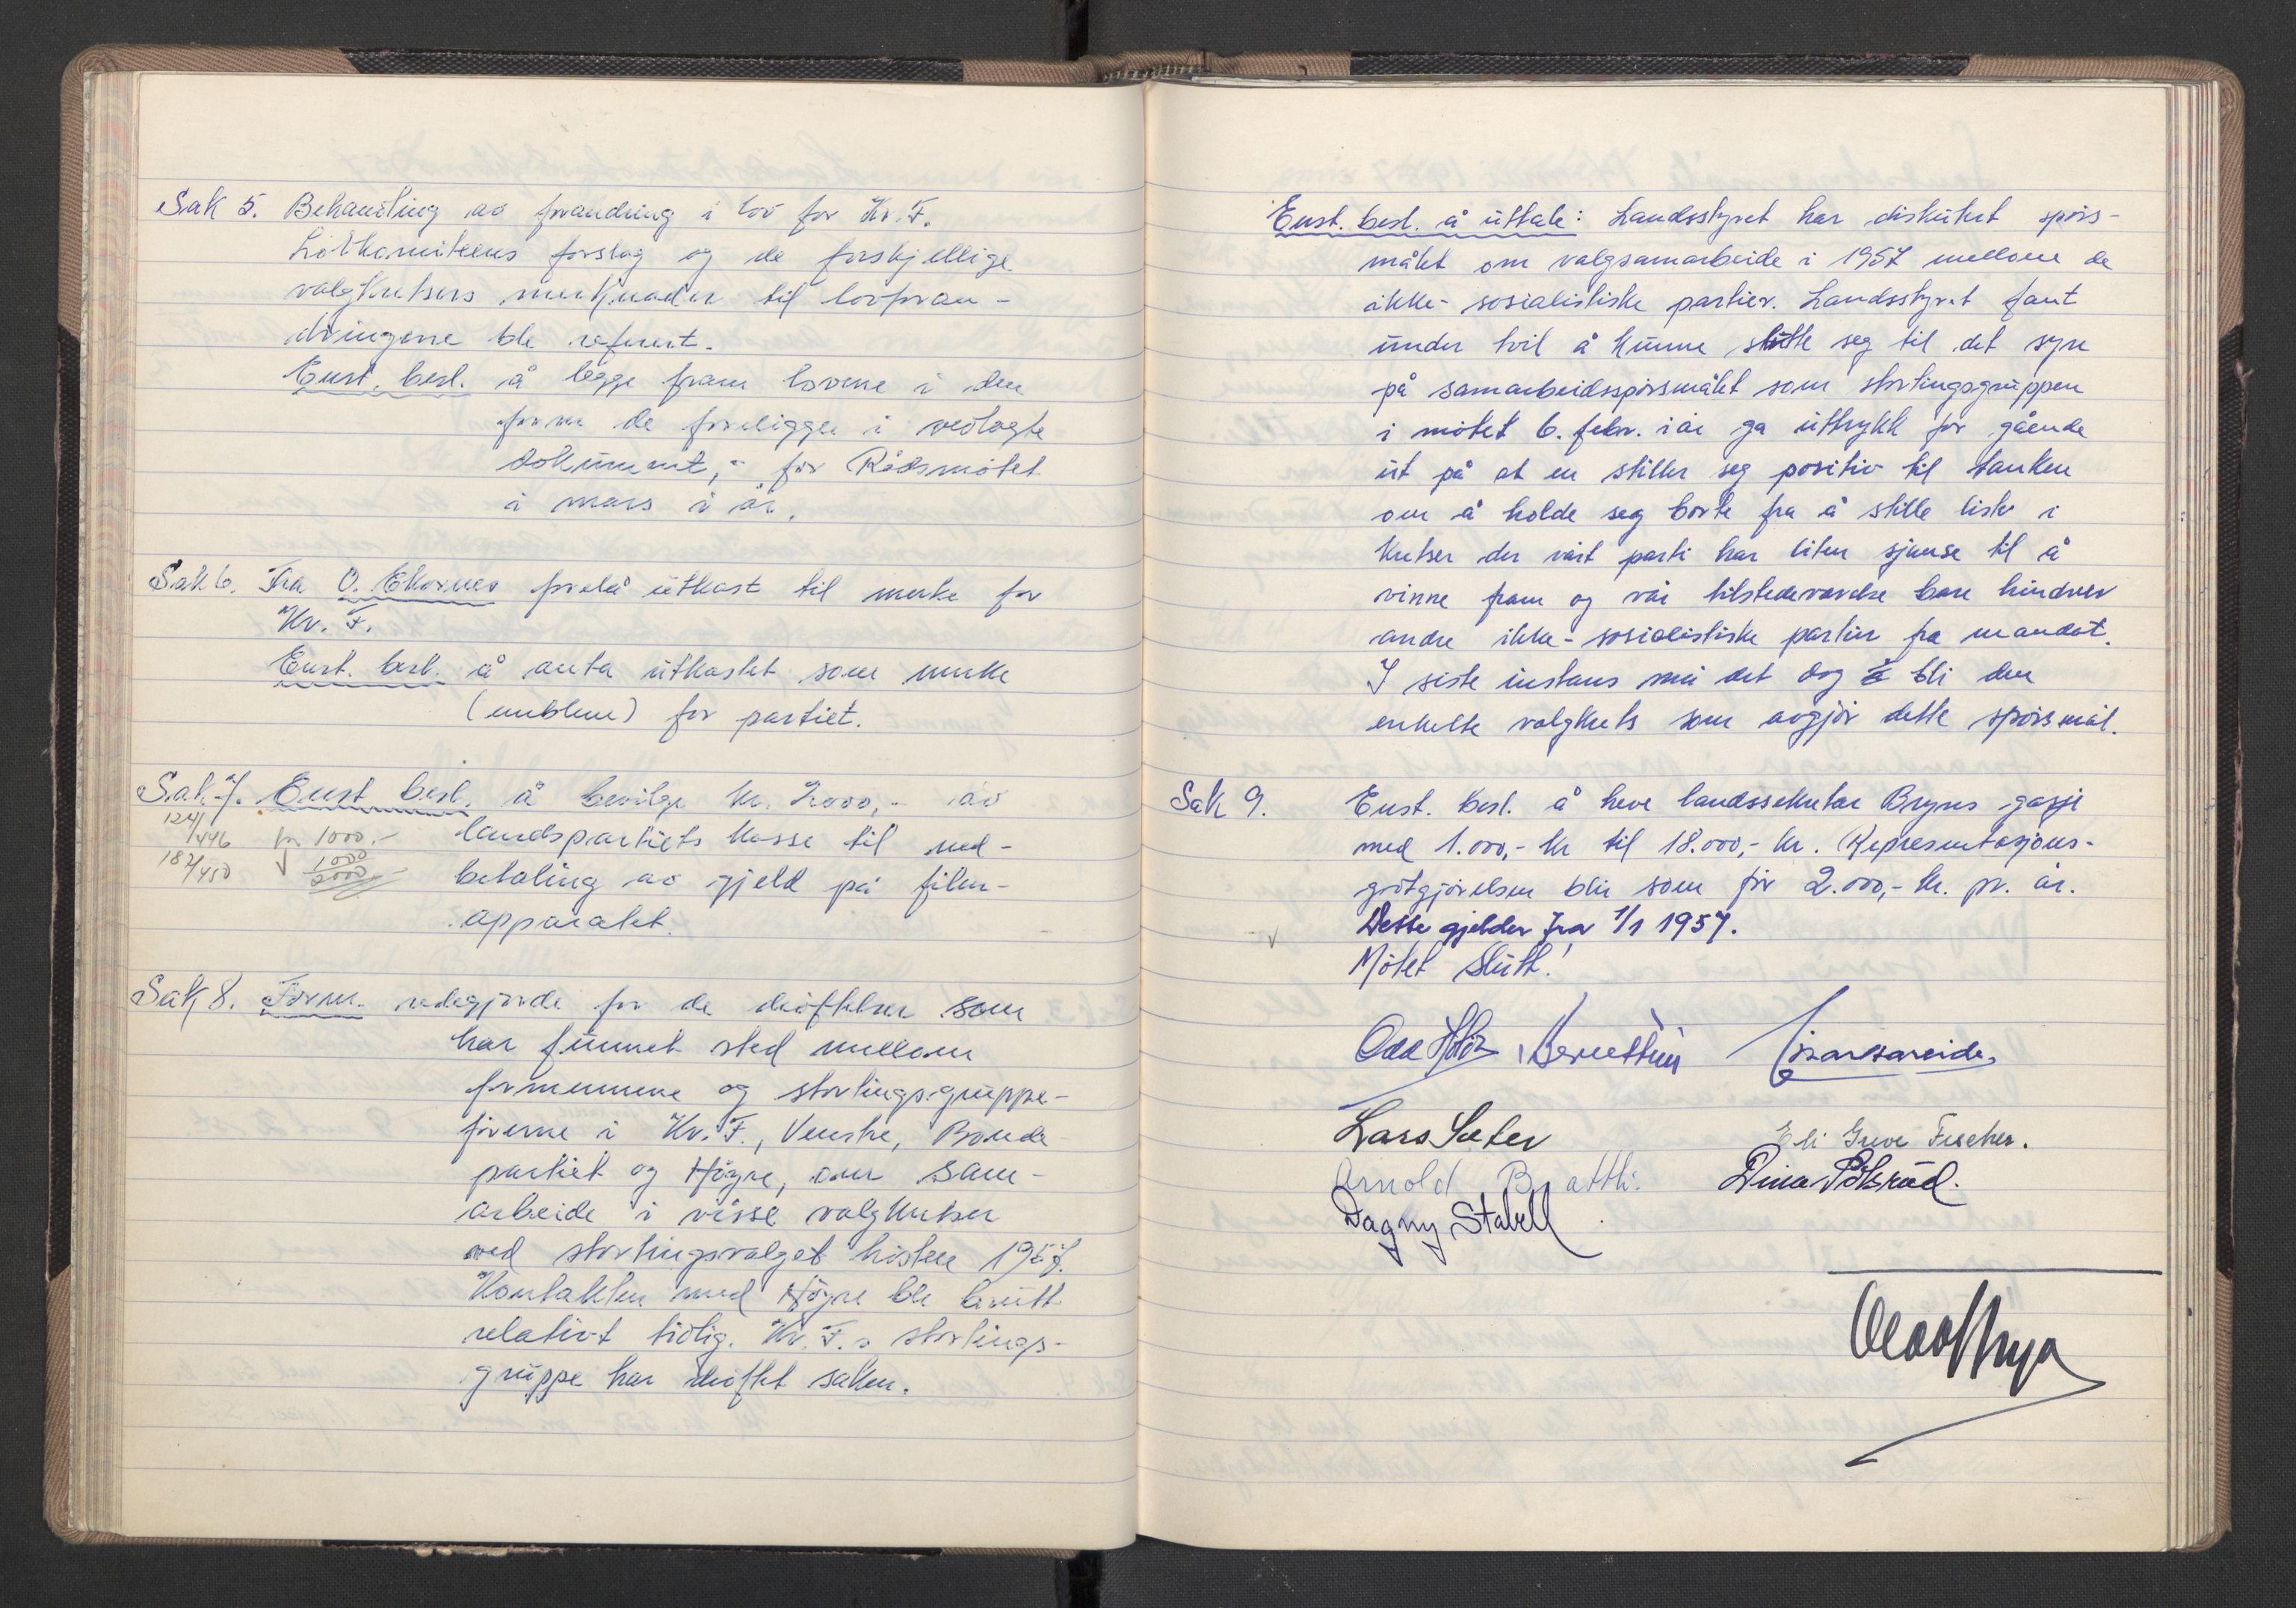 Sak 5. Behandling av forandring i lov for Kr. F.
Lovkomiteens forslag og de forskjellige
valgkretsers merknader til lovforan-
dringene ble referert.
Enst. besl. å legge fram lovene i den
form de foreligger i vedlagte
dokument, - for Rådsmøtet
i mars i år.
Sak 6. Fra O. Ekornes forelå utkast til merke for
Kr. F.
Enst. besl. å anta utkastet som merke
(emblem) for partiet.
Sak 7. Enst besl. å bevilge kr. 2000,- av
landspartiets kasse til ned-
betaling av gjeld på film-
apparatet.
124/446 kr 1000.-
182/450 1000
2000
Sak 8. Form. redegjorde for de drøftelser som
har funnet sted mellom
formennene og stortingsgruppe-
førerne i Kr. F., Venstre, Bonde-
partiet og Høgre, om sam-
arbeide i visse valgkretser
ved stortingsvalget høsten 1957.
Kontakten med Høgre ble brutt
relativt tidlig. Kr. F.s stortings-
gruppe har drøftet saken.
Enst. besl. å uttale: Landsstyret har diskutert spørs-
målet om valgsamarbeide i 1957 mellom de
ikke-sosialistiske partier. Landsstyret fant
under tvil å kunne slutte seg til det syn
på samarbeidsspørsmålet som stortingsgruppen
i møtet 6. febr. i år ga uttrykk for gående
ut på at en stiller seg positiv til tanken
om å holde seg borte fra å stille lister i
kretser der vårt parti har liten sjanse til å
vinne fram og vår tilstedeværelse bare hindrer
andre ikke-sosialistiske partier fra mandat.
I siste instans må det dog bli den
enkelte valgkrets som avgjør dette spørsmål.
Sak 9. Enst. besl. å heve landssekretær Bryns gasje
med 1.000,- kr til 18.000,- kr. (Representasjons-
godtgjørelsen blir som før 2.000,- kr. pr. år.
Dette gjelder fra 1/1 1957.
Møtet slutt!
Lars Sæter Eli Greve Fischer.
Arnold Brattli.
Dagny Stabell